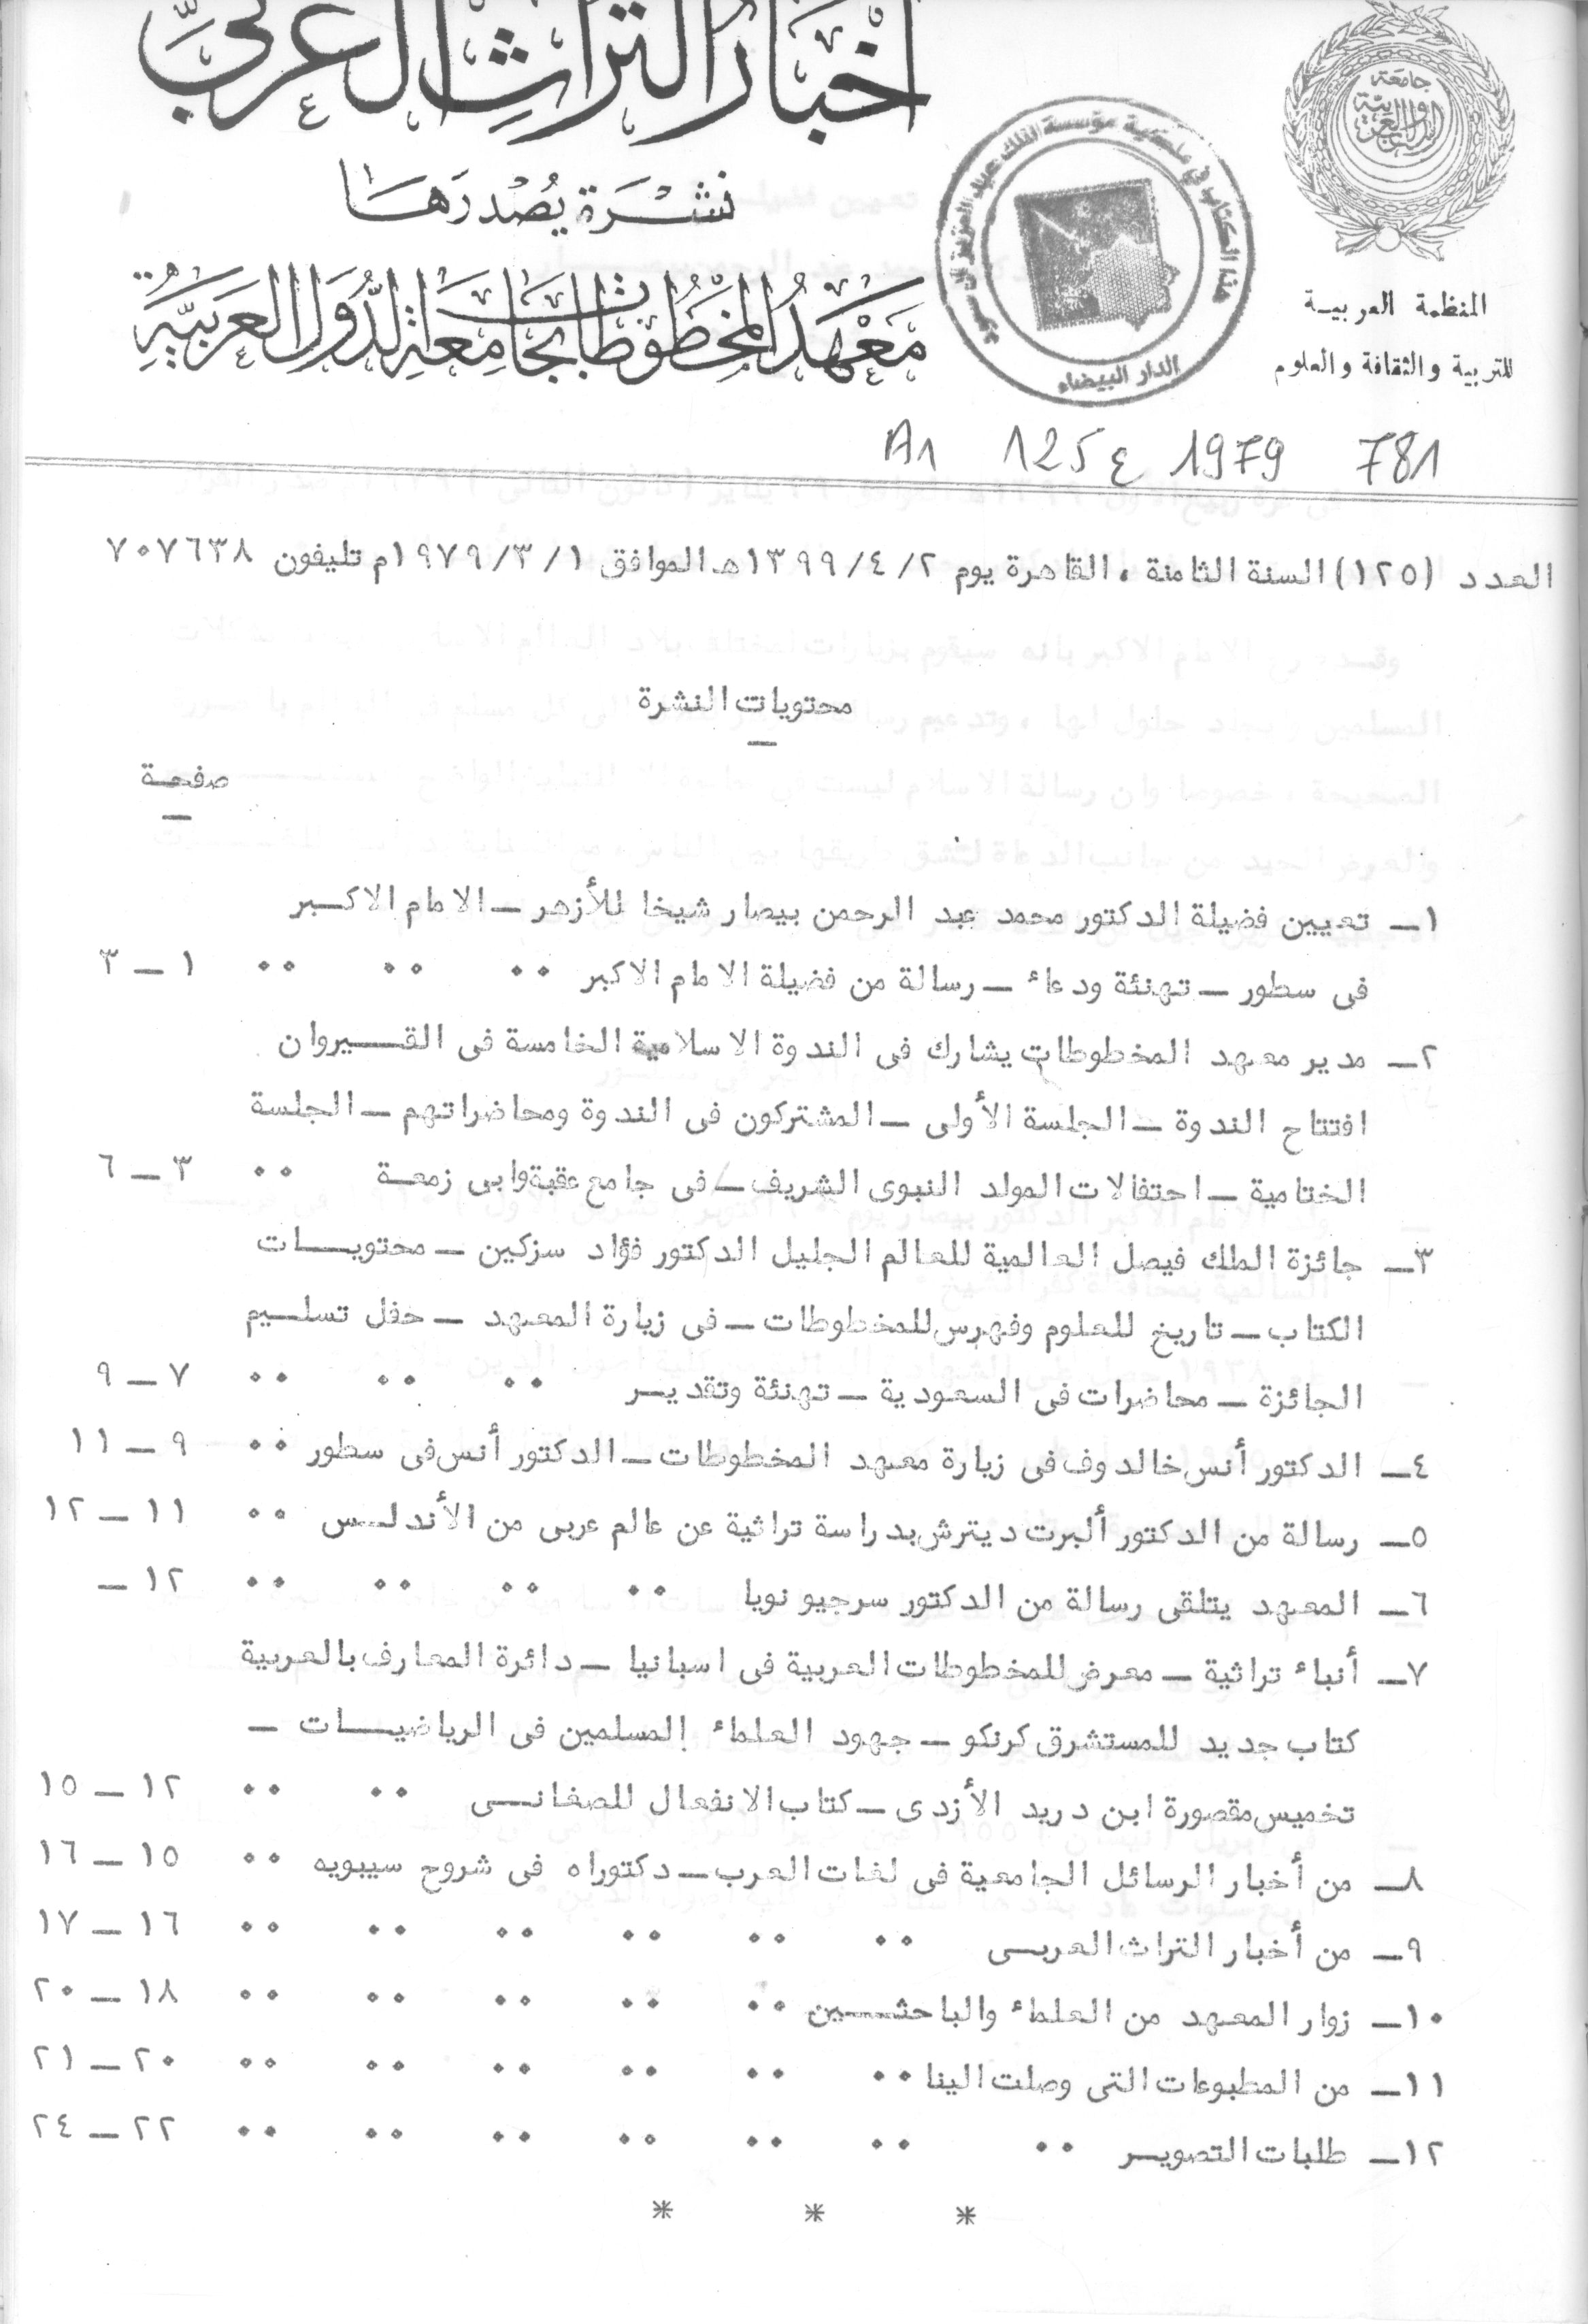 أخبار التراث العربي
نشرة يصدرها
معهد المخطوطات بجامعة الدول العربية
جامعة الدول العربية
المنظمة العربية
للتربية والثقافة والعلوم
هذا الكتاب في ملكية مؤسسة الملك عبد العزيز آل سعود
الدار البيضاء
A1 125 ع 1979 781
العدد (١٢٥) السنة الثامنة ، القاهرة يوم ١٣٩٩/٤/٢هـ الموافق ١٩٧٩/٣/١م تليفون ٧٠٧٦٣٨
محتويات النشرة
صفحة
١ــ تعيين فضيلة الدكتور محمد عبد الرحمن بيصار شيخا للأزهر ــ الامام الاكبر
فى سطور ــ تهنئة ودعاء ــ رسالة من فضيلة الامام الاكبر ٠٠ ٠٠ ٠٠ ١ ــ ٣
٢ــ مدير معهد المخطوطات يشارك فى الندوة الاسلامية الخامسة فى القيروان
افتتاح الندوة ــ الجلسة الأولى ــ المشتركون فى الندوة ومحاضراتهم ــ الجلسة
الختامية ــ احتفالات المولد النبوى الشريف ــ فى جامع عقبة وابى زمعة ٠٠ ٣ ــ ٦
٣ــ جائزة الملك فيصل العالمية للعالم الجليل الدكتور فؤاد سزكين ــ محتويات
الكتاب ــ تاريخ للعلوم وفهرس للمخطوطات ــ فى زيارة المعهد ــ حفل تسليم
الجائزة ــ محاضرات فى السعودية ــ تهنئة وتقدير ٠٠ ٠٠ ٠٠ ٧ ــ ٩
٤ــ الدكتور أنس خالدوف فى زيارة معهد المخطوطات ــ الدكتور أنس فى سطور ٠٠ ٩ ــ ١١
٥ــ رسالة من الدكتور ألبرت ديترش بدراسة تراثية عن عالم عربى من الأندلس ٠٠ ١١ ــ ١٢
٦ــ المعهد يتلقى رسالة من الدكتور سرجيو نويا ٠٠ ٠٠ ٠٠ ٠٠ ١٢ ــ
٧ــ أنباء تراثية ــ معرض للمخطوطات العربية فى اسبانيا ــ دائرة المعارف بالعربية
كتاب جديد للمستشرق كرنكو ــ جهود العلماء المسلمين فى الرياضيات ــ
تخميس مقصورة ابن دريد الأزدى ــ كتاب الانفعال للصغانى ٠٠ ٠٠ ١٢ ــ ١٥
٨ــ من أخبار الرسائل الجامعية فى لغات العرب ــ دكتوراه فى شروح سيبويه ٠٠ ١٥ ــ ١٦
٩ــ من أخبار التراث العربى ٠٠ ٠٠ ٠٠ ٠٠ ٠٠ ٠٠ ١٦ ــ ١٧
١٠ــ زوار المعهد من العلماء والباحثين ٠٠ ٠٠ ٠٠ ٠٠ ٠٠ ١٨ ــ ٢٠
١١ــ من المطبوعات التى وصلت الينا ٠٠ ٠٠ ٠٠ ٠٠ ٠٠ ٠٠ ٢٠ ــ ٢١
١٢ــ طلبات التصوير ٠٠ ٠٠ ٠٠ ٠٠ ٠٠ ٠٠ ٠٠ ٢٢ ــ ٢٤
* * *